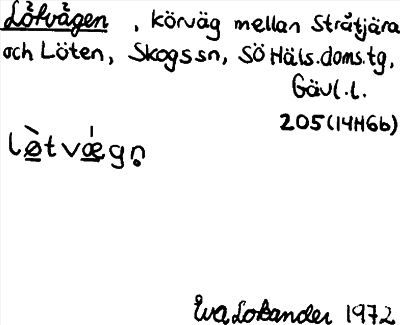 Lötvägen, körväg mellan Stråtjära
och Löten, Skogssn, SÖ Häls.doms.tg,
Gävl.l.
205 (14H6b)
lø̀tvǽgṇ
Eva Lokander 1972